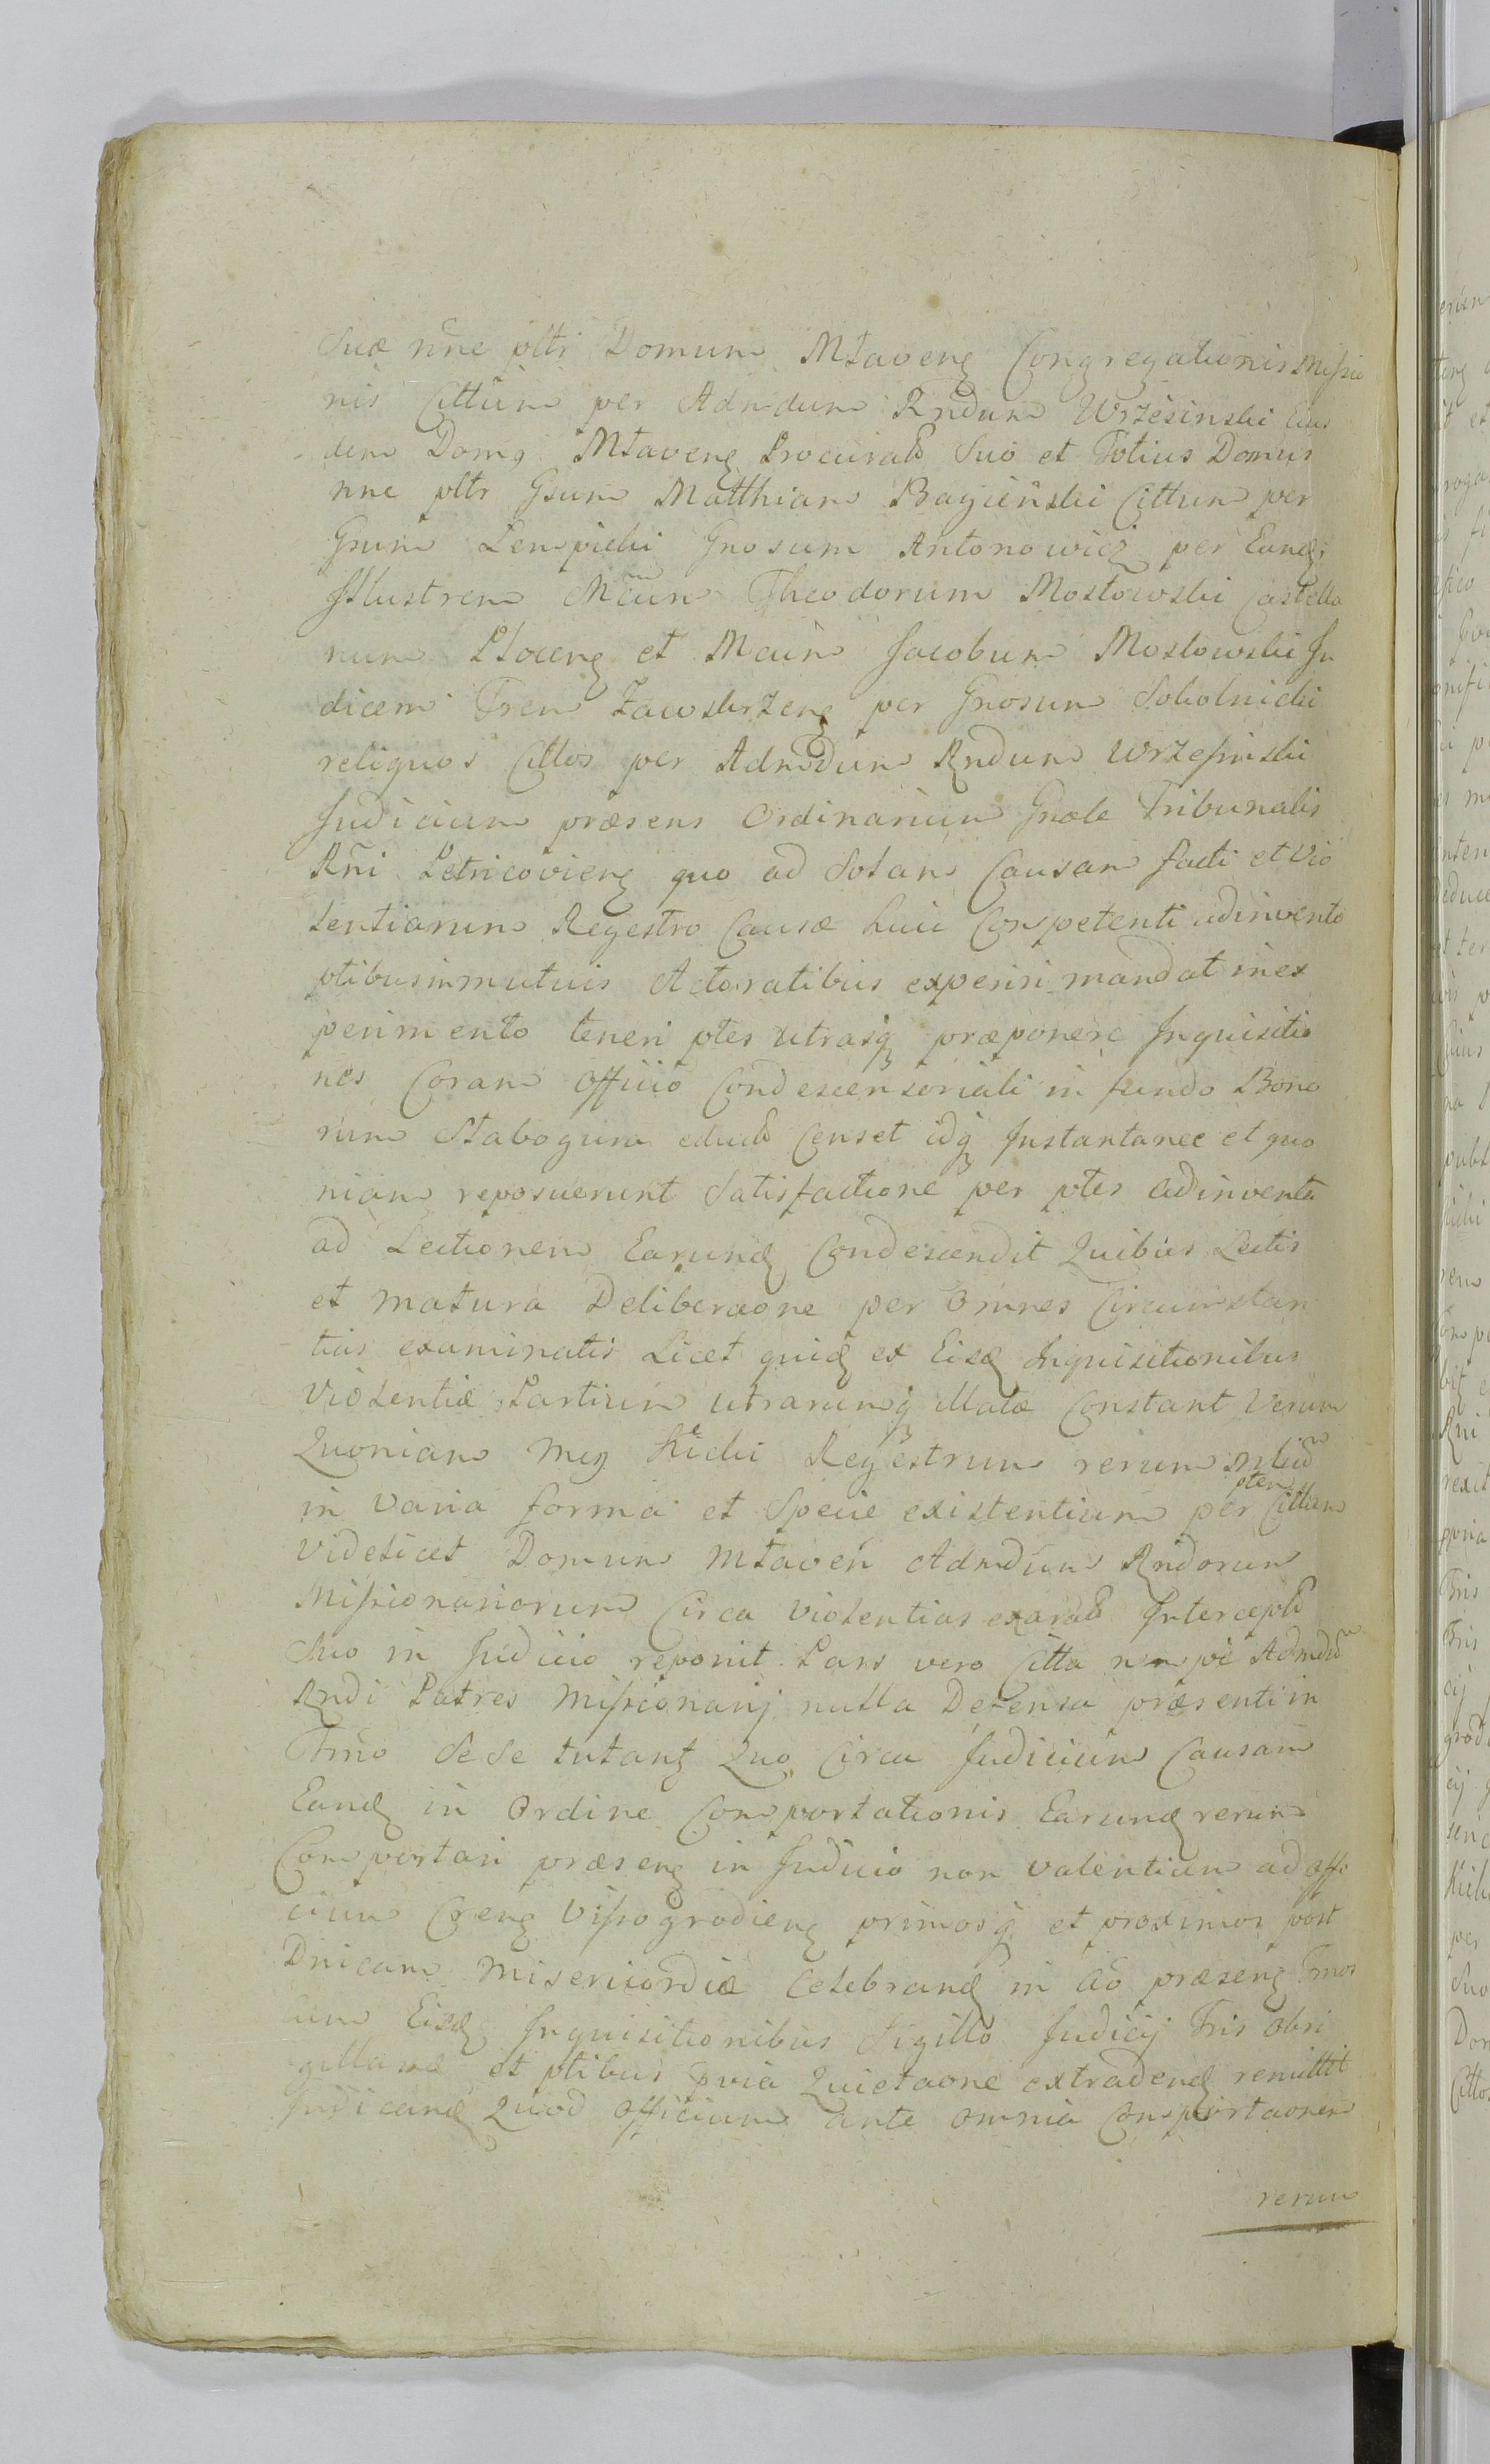 Suæ nne pltr Domum Mlaveng Congregationis Missio
nis Cittum per Admdum Rndum Wrzesinski Eius
dem Domg Mlaveng Procurab Suo et Totius Domus
nne pltr Gsum Matthiam Bagieński Cittum per
Gnum Lempicki Gnosum Antonowicz per Eund
Illustrem Mcum Theodorum Mostowski Castella
num Ploceng et Mcum Jacobum Mostowski Ju
dicem Trem Zawskrzeng per Gnosum Sokolnicki
reliquos Cittos per Admdum Rndum Wrzessinski
Judicium præsens Ordinarium Gnale Tribunalis
Rni Petricovieng quo ad Solam Causam facti et Vio
lentiarum Regestro Causæ huic Competenti adinvento
ptibus in mutuis Actoratibus experiri mandat in ex
perimento teneri ptes utrasq præponere Inquisitio
nes Coram Officio Condescensoriali in fundo Bono
rum Stabogura educt Censet idq Instantanee et quo
niam reposuerunt Satisfactione per ptes adinventa
ad Lectionem Earund Condescendit Quibus Lectis
et matura Deliberaone per Omnes Circumstan
tias examinatis Licet quid ex Eisd Inquisitionibus
Violentiæ Partium utrarumq illatæ Constant Verum
Quoniam Mg Kicki Regestrum rerum
in varia forma et Specie existentium per ptem Cittam
videlicet Domum Mlaven Admdum Rndorum
Missionariorum Circa violentias exarat Intercept
Suo in Judicio reponit Pars vero Citta nempe Admdu
Rndi Patres Missionarij nulla Defensa præsenti in
Tmno Se se tutant Quo Circa Judicium Causam
Eand in Ordine Comportationis Earund rerum
Comportari præseng in Judicio non valentium ad Offi
cium Creng Vissogrodieng primosq et proximos post
Dnicam Misericordiæ Celebrand in Ao præseng Tmos
um Eisd Inquisitionibus Sigillo Judicij Tris obsi
gilland et ptibus pvia Quietaone extradend remittit
Judicand Quod Officium ante omnia Comportaonem
rerum